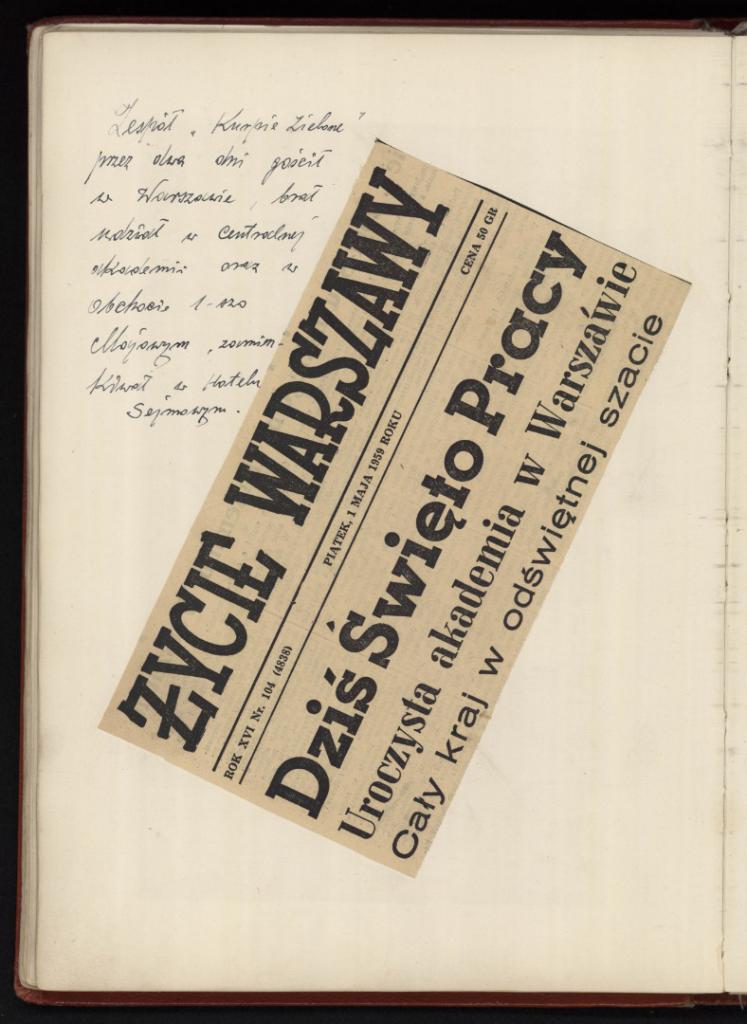 Zespół „Kurpie Zielone"
przez dwa dni gościł
w Warszawie, brał
udział w centralnej
akademii oraz w
obchodzie 1-szo
Majowym, zamiesz-
kiwał w Hotelu
Sejmowym.
ŻYCIE WARSZAWY
ROK XVI Nr. 104 (4838) PIĄTEK, 1 MAJA 1959 ROKU CENA 50 GR
Dziś Święto Pracy
Uroczysta akademia w Warszawie
Cały kraj w odświętnej szacie